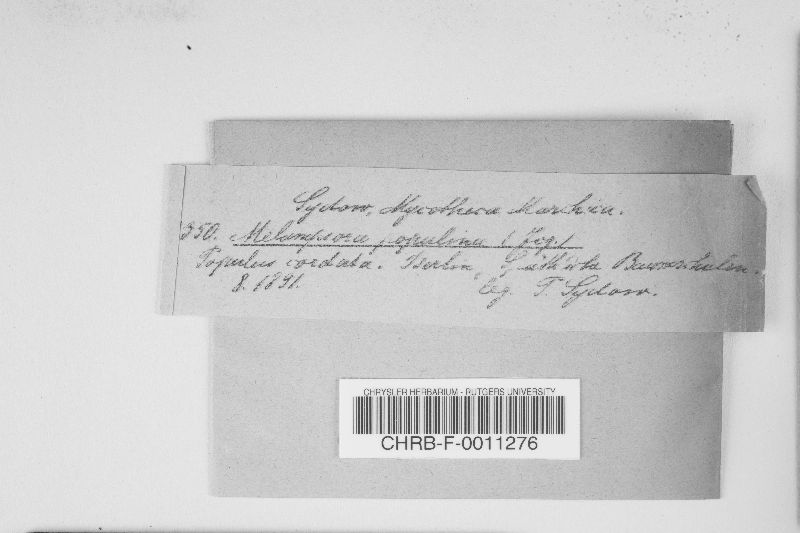 Sydow, Mycotheca Marchica.
350. Melampsora populina (Jcq.)
Populus cordata. Berlin, Späth'sche Baumschulen.
8. 1891. leg. P. Sydow.
CHRYSLER HERBARIUM - RUTGERS UNIVERSITY
CHRB-F-0011276